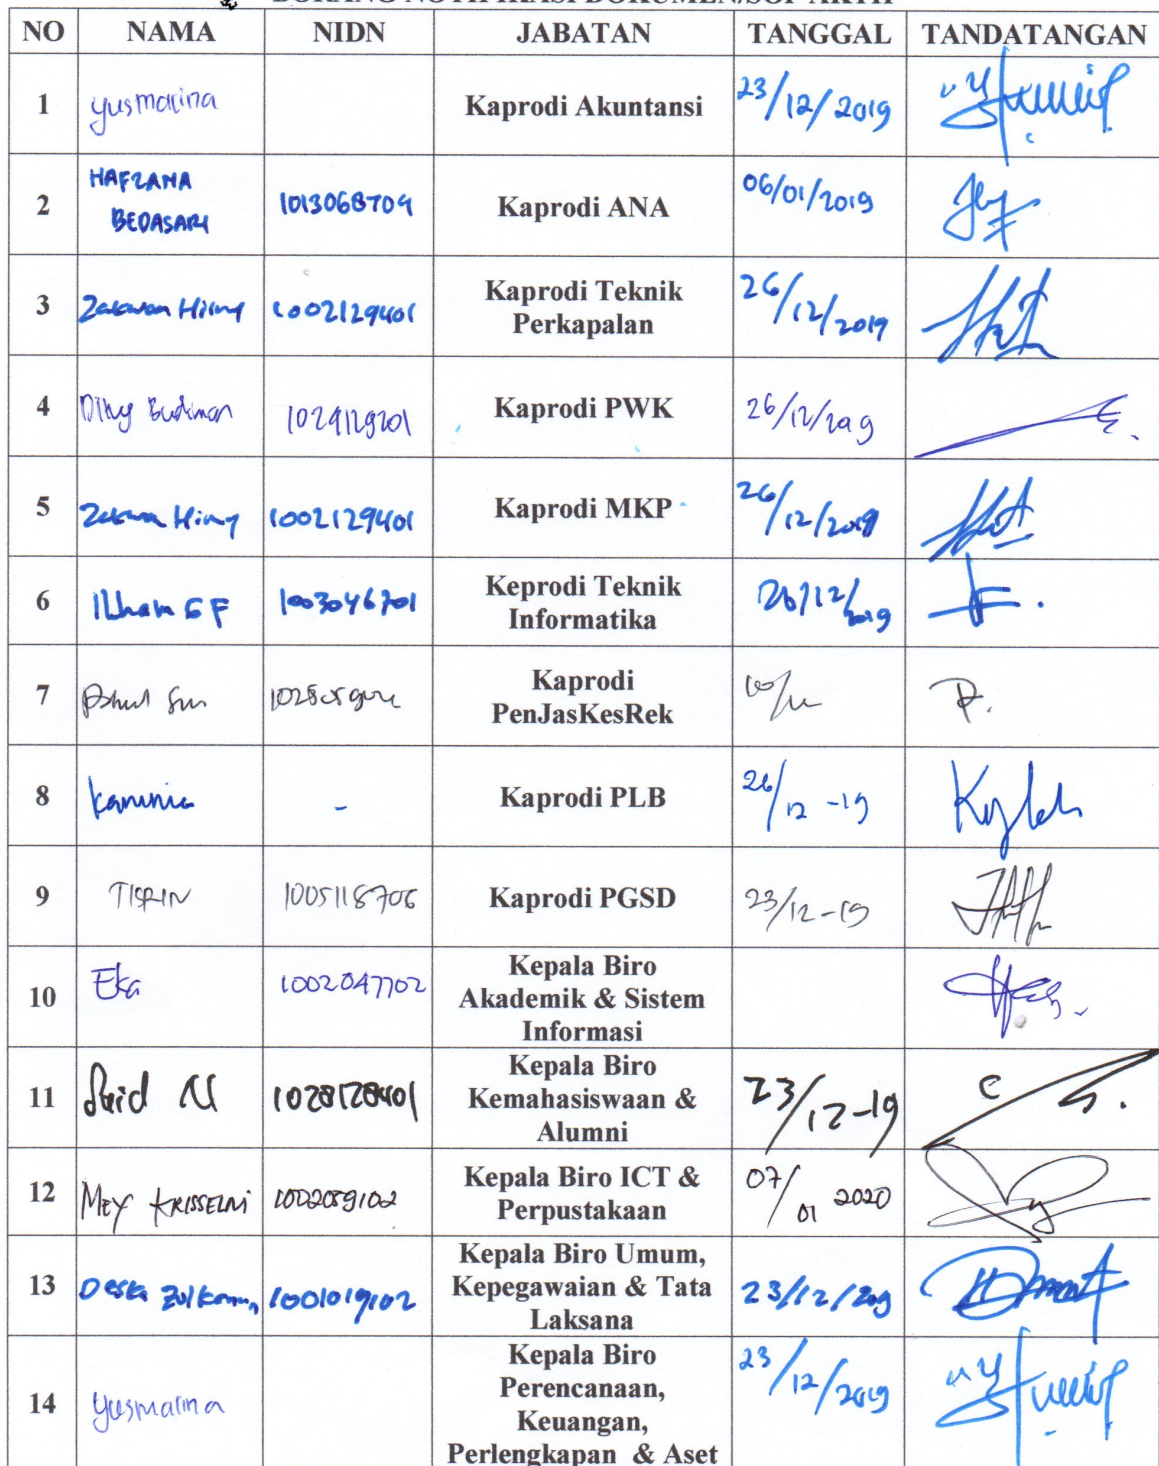 BORANG NOTIFIKASI DOKUMEN/SOP AKTIF
NO NAMA NIDN JABATAN TANGGAL TANDATANGAN
1 yusmarina Kaprodi Akuntansi 23/12/2019
2 HAFZANA BEDASARI 1013068709 Kaprodi ANA 06/01/2019
3 1002129401 Kaprodi Teknik Perkapalan 26/12/2019
4 Budiman Kaprodi PWK 26/12/2019
5 1002129401 Kaprodi MKP 26/12/2019
6 Ilham EF 1003046701 Keprodi Teknik Informatika 26/12/2019
7 Kaprodi PenJasKesRek
8 Kaprodi PLB 26/12-19
9 1005118706 Kaprodi PGSD 23/12-19
10 Eka 1002047702 Kepala Biro Akademik & Sistem Informasi
11 Said N 1028128401 Kepala Biro Kemahasiswaan & Alumni 23/12-19
12 MEY KRISSELNI 1002059102 Kepala Biro ICT & Perpustakaan 07/01 2020
13 1001019102 Kepala Biro Umum, Kepegawaian & Tata Laksana 23/12/2019
14 yusmarina Kepala Biro Perencanaan, Keuangan, Perlengkapan & Aset 23/12/2019